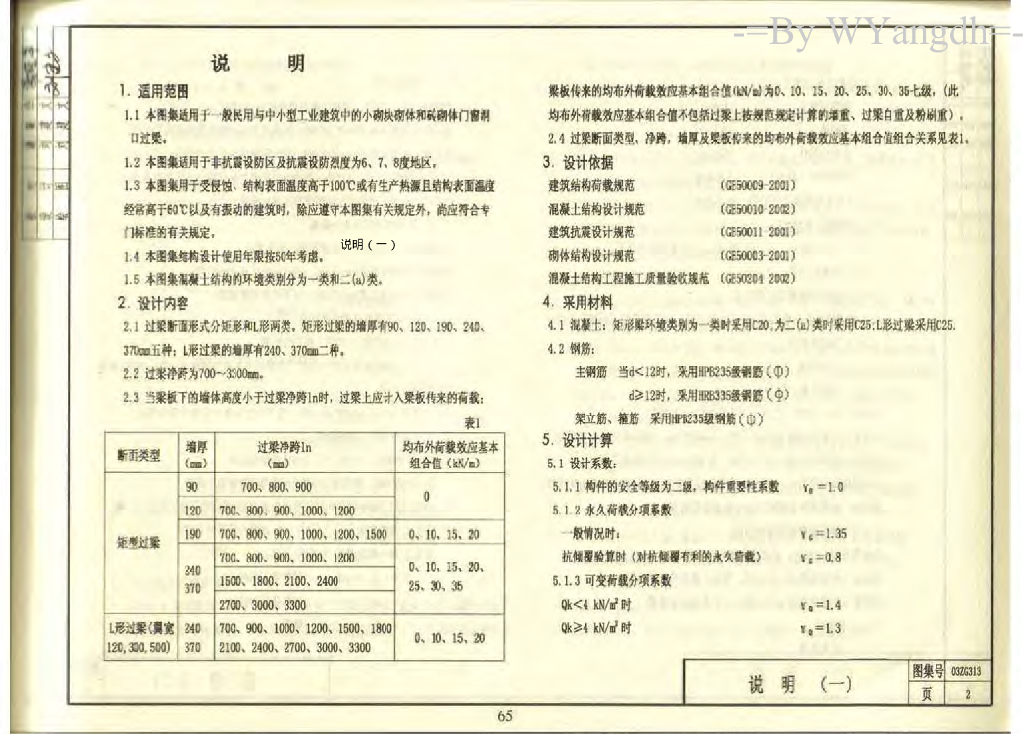 -=By WYangdh=-
说 明
1. 适用范围
1.1 本图集适用于一般民用与中小型工业建筑中的小砌块砌体和砖砌体门窗洞
口过梁。
1.2 本图集适用于非抗震设防区及抗震设防烈度为6、7、8度地区。
1.3 本图集用于受侵蚀、结构表面温度高于100℃或有生产热源且结构表面温度
经常高于60℃以及有振动的建筑时，除应遵守本图集有关规定外，尚应符合专
门标准的有关规定。
说明（一）
1.4 本图集结构设计使用年限按50年考虑。
1.5 本图集混凝土结构的环境类别分为一类和二(a)类。
2. 设计内容
2.1 过梁断面形式分矩形和L形两类。矩形过梁的墙厚有90、120、190、240、
370mm五种；L形过梁的墙厚有240、370mm二种。
2.2 过梁净跨为700～3300mm。
2.3 当梁板下的墙体高度小于过梁净跨ln时，过梁上应计入梁板传来的荷载；
表1
断面类型 墙厚(mm) 过梁净跨ln(mm) 均布外荷载效应基本组合值(kN/m)
矩形过梁
90 700、800、900
0
120 700、800、900、1000、1200
190 700、800、900、1000、1200、1500 0、10、15、20
240
370
700、800、900、1000、1200
1500、1800、2100、2400
2700、3000、3300
0、10、15、20、
25、30、35
L形过梁(翼宽 240 700、900、1000、1200、1500、1800
120,300,500) 370 2100、2400、2700、3000、3300
0、10、15、20
梁板传来的均布外荷载效应基本组合值(kN/m)为0、10、15、20、25、30、35七级，(此
均布外荷载效应基本组合值不包括过梁上按规范规定计算的墙重、过梁自重及粉刷重)。
2.4 过梁断面类型、净跨，墙厚及梁板传来的均布外荷载效应基本组合值组合关系见表1。
3. 设计依据
建筑结构荷载规范 (GB50009-2001)
混凝土结构设计规范 (GB50010-2002)
建筑抗震设计规范 (GB50011-2001)
砌体结构设计规范 (GB50003-2001)
混凝土结构工程施工质量验收规范 (GB50204-2002)
4. 采用材料
4.1 混凝土：矩形梁环境类别为一类时采用C20;为二(a)类时采用C25;L形过梁采用C25.
4.2 钢筋:
主钢筋 当d<12时，采用HPB235级钢筋(Φ)
d≥12时，采用HRB335级钢筋(Φ)
架立筋、箍筋 采用HPB235级钢筋(Φ)
5. 设计计算
5.1 设计系数:
5.1.1 构件的安全等级为二级，构件重要性系数 γ₀=1.0
5.1.2 永久荷载分项系数
一般情况时： γG=1.35
抗倾覆验算时（对抗倾覆有利的永久荷载） γG=0.8
5.1.3 可变荷载分项系数
Qk<4 kN/m²时 γQ=1.4
Qk≥4 kN/m²时 γQ=1.3
说 明 (一)
图集号 03ZG313
页 2
65